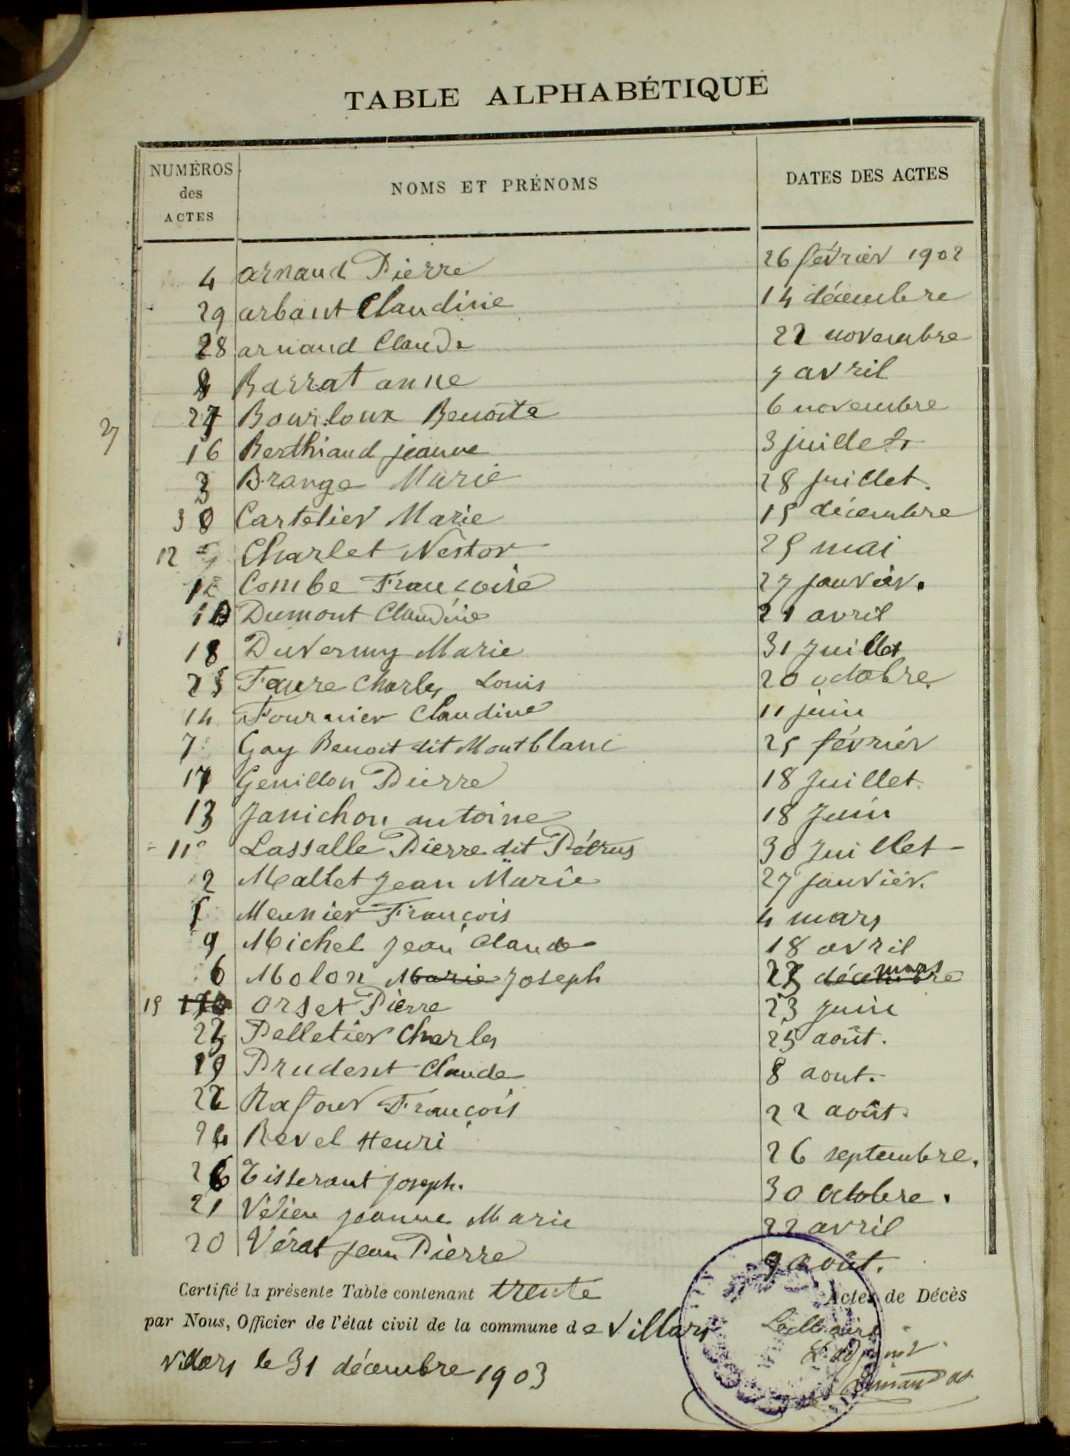 TABLE ALPHABÉTIQUE
NUMÉROS des ACTES NOMS ET PRÉNOMS DATES DES ACTES
4 arnaud Pierre 26 février 1902
29 arbant Claudine 14 décembre
28 arnaud Claude 22 novembre
8 Barrat anne 7 avril
27 Bourloux Benoîte 6 novembre
16 Berthiaud jeanne 3 juillet
3 Brange Marie 28 juillet.
30 Cartelier Marie 15 décembre
12 Charlet Nestor 25 mai
1 Combe Françoise 27 janvier.
10 Dumont Claudine 21 avril
18 Duvernuy Marie 31 Juillet
25 Faure Charles Louis 20 octobre
14 Fournier Claudine 11 juin
7 Gay Benoit dit Montblanc 25 février
17 Genillon Pierre 18 Juillet
13 Janichon antoine 18 Juin
11 Lassalle Pierre dit Pétrus 30 Juillet
2 Mallet Jean Marie 27 Janvier.
5 Meunier François 4 mars
9 Michel Jean Claude 18 avril
6 Molon Marie Joseph décembre mars
15 orset Pierre 23 juin
23 Pelletier Charles 25 août.
19 Prudent Claude 8 aout.
22 Rafour François 22 août.
24 Revel Henri 26 septembre.
26 Tisserant Joseph. 30 Octobre.
21 Vélien Jeanne Marie 22 avril
20 Vérat Jean Pierre 9 août.
Certifié la présente Table contenant trente Actes de Décès
par Nous, Officier de l'état civil de la commune de Villars
Villars le 31 décembre 1903